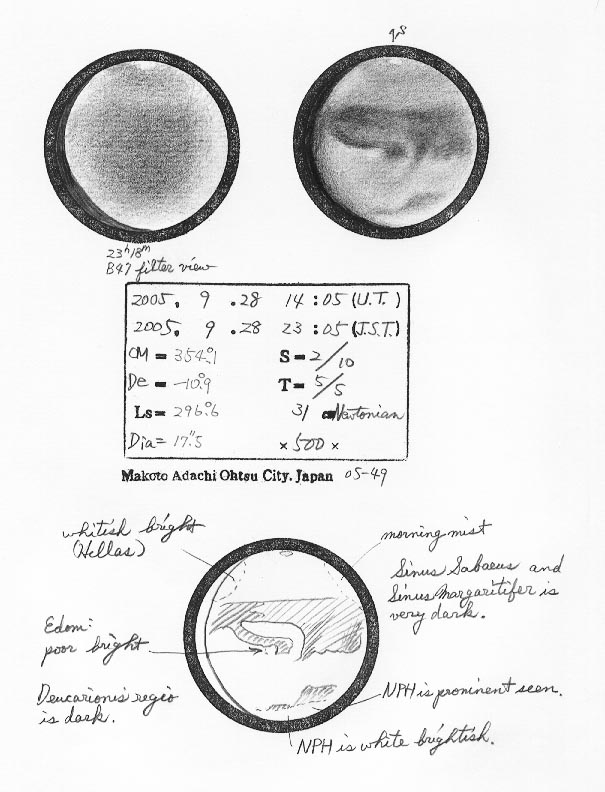 23ʰ18ᵐ
B47 filter view
2005. 9 .28 14 : 05 (U.T.)
2005. 9 .28 23 : 05 (J.S.T.)
CM = 354.°1 S = 2/10
De = -10.°9 T = 5/5
Ls = 296.°6 31 Newtonian
Dia = 17."5 × 500 ×
Makoto Adachi Ohtsu City. Japan 05-49
whitish bright
(Hellas)
morning mist
Sinus Sabaeus and
Sinus Margaritifer is
very dark.
Edom:
poor bright
Deucarionis regio
is dark.
NPH is prominent seen.
NPH is white brightish.